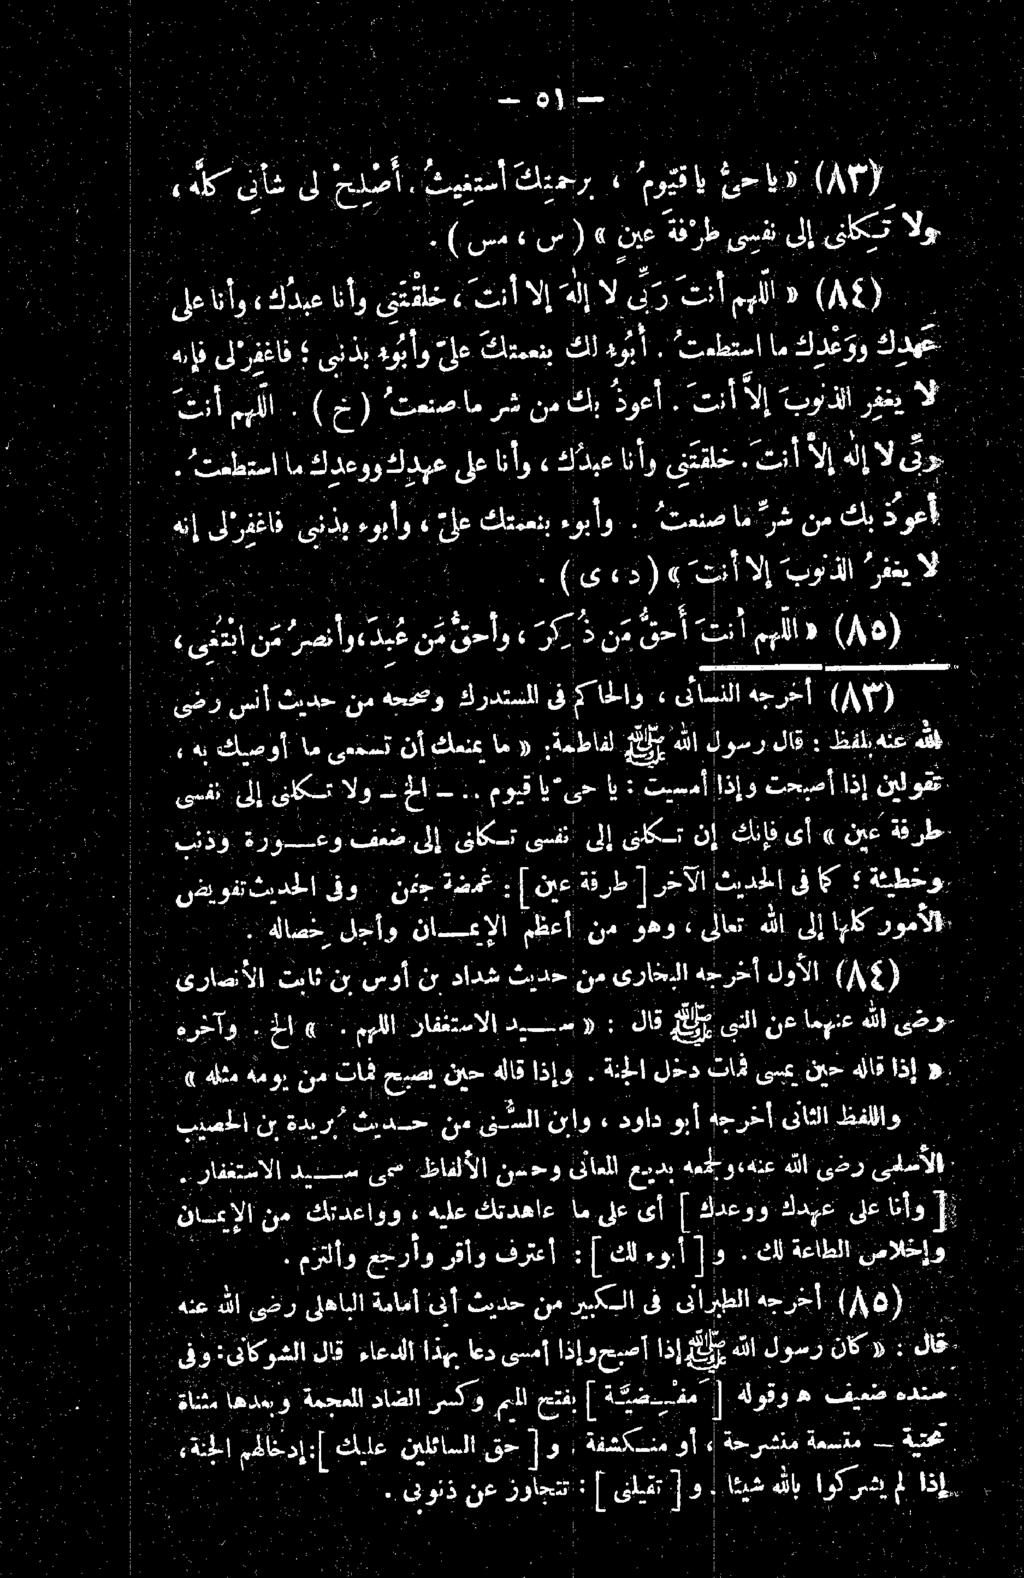 — ٥١ —
(٨٣) «يا حىُّ يا قيّومُ ، برحمتِكَ أستغيثُ. أَصْلِحْ لى شأنى كلَّه ،
ولا تَكِلنى إلى نفسِى طرْفةَ عينٍ » ( س ، مس ) .
(٨٤) « اللّهم أنتَ ربِّى لا إلٰهَ إلا أنتَ ، خلقْتَنِى وأنا عبدُك، وأنا على
عَهدِك ووَعْدِك ما استطعتُ . أَبُوءُ لك بنعمتكَ علىّ وأبُوءُ بذنبى ؛ فاغفِرْ لى فإنه
لا يغفِر الذنوبَ إلاَّ أنتَ . أعوذُ بك من شر ما صنعتُ ( خ ) . اللّهم أنتَ
ربِّى لا إلٰه إلاَّ أنتَ. خلقتَنِى وأنا عبدُك ، وأنا على عهدِك ووعدِك ما استطعتُ .
أعوذُ بك من شرِّ ما صنعتُ . وأبوء بنعمتك علىّ ، وأبوء بذنبى فاغفِرْ لى إنه
لا يغفرُ الذنوبَ إلا أنتَ » ( د ، ى ) .
(٨٥) « اللّهم أنتَ أَحقُّ مَن ذُكِرَ ، وأحقُّ مَن عُبِدَ، وأنصرُ مَن ابْتُغِى ،
(٨٣) أخرجه النسائى ، والحاكم فى المستدرك وصححه من حديث أنس رضى
الله عنه بلفظ : قال رسول الله ﷺ لفاطمة: « ما يمنعك أن تسمعى ما أوصيك به ،
تقولين إذا أصبحت وإذا أمسيت : يا حى يا قيوم .. – الخ – ولا تكلنى إلى نفسى
طرفة عين » أى فإنك إن تكلنى إلى نفسى تكلنى إلى ضعف وعورة وذنب
وخطيئة ؛ كما فى الحديث الآخر [ طرفة عين ] : غمضة جفن وفى الحديث تفويض
الأمور كلها إلى الله تعالى ، وهو من أعظم الإيمان وأجل خصاله .
(٨٤) الأول أخرجه البخارى من حديث شداد بن أوس بن ثابت الأنصارى
رضى الله عنهما عن النبى ﷺ قال : « سيد الاستغفار اللهم . » الخ . وآخره
« إذا قاله حين يمسى فمات دخل الجنة . وإذا قاله حين يصبح فمات من يومه مثله »
واللفظ الثانى أخرجه أبو داود ، وابن السُّنى من حديث بُريدة بن الحصيب
الأسلمى رضى الله عنه، ولجمعه بديع المعانى وحسن الألفاظ سمى سيد الاستغفار .
[ وأنا على عهدك ووعدك ] أى على ما عاهدتك عليه ، وواعدتك من الإيمان
وإخلاص الطاعة لك . و [ أبوء لك ] : أعترف وأقر وأرجع وألتزم .
(٨٥) أخرجه الطبرانى فى الكبير من حديث أبى أمامة الباهلى رضى الله عنه
قال : « كان رسول الله ﷺ إذا أصبح وإذا أمسى دعا بهذا الدعاء قال الشوكانى: وفى
سنده ضعيف ه وقوله [ مفْضِيَّة ] بفتح الميم وكسر الضاد المعجمة وبعدها مثناة
تحتية – متسعة منشرحة ، أو منكشفة . و [ حق السائلين عليك ]: إدخالهم الجنة،
إذا لم يشركوا بالله شيئا . و [ تقيلنى ] : تتجاوز عن ذنوبى .